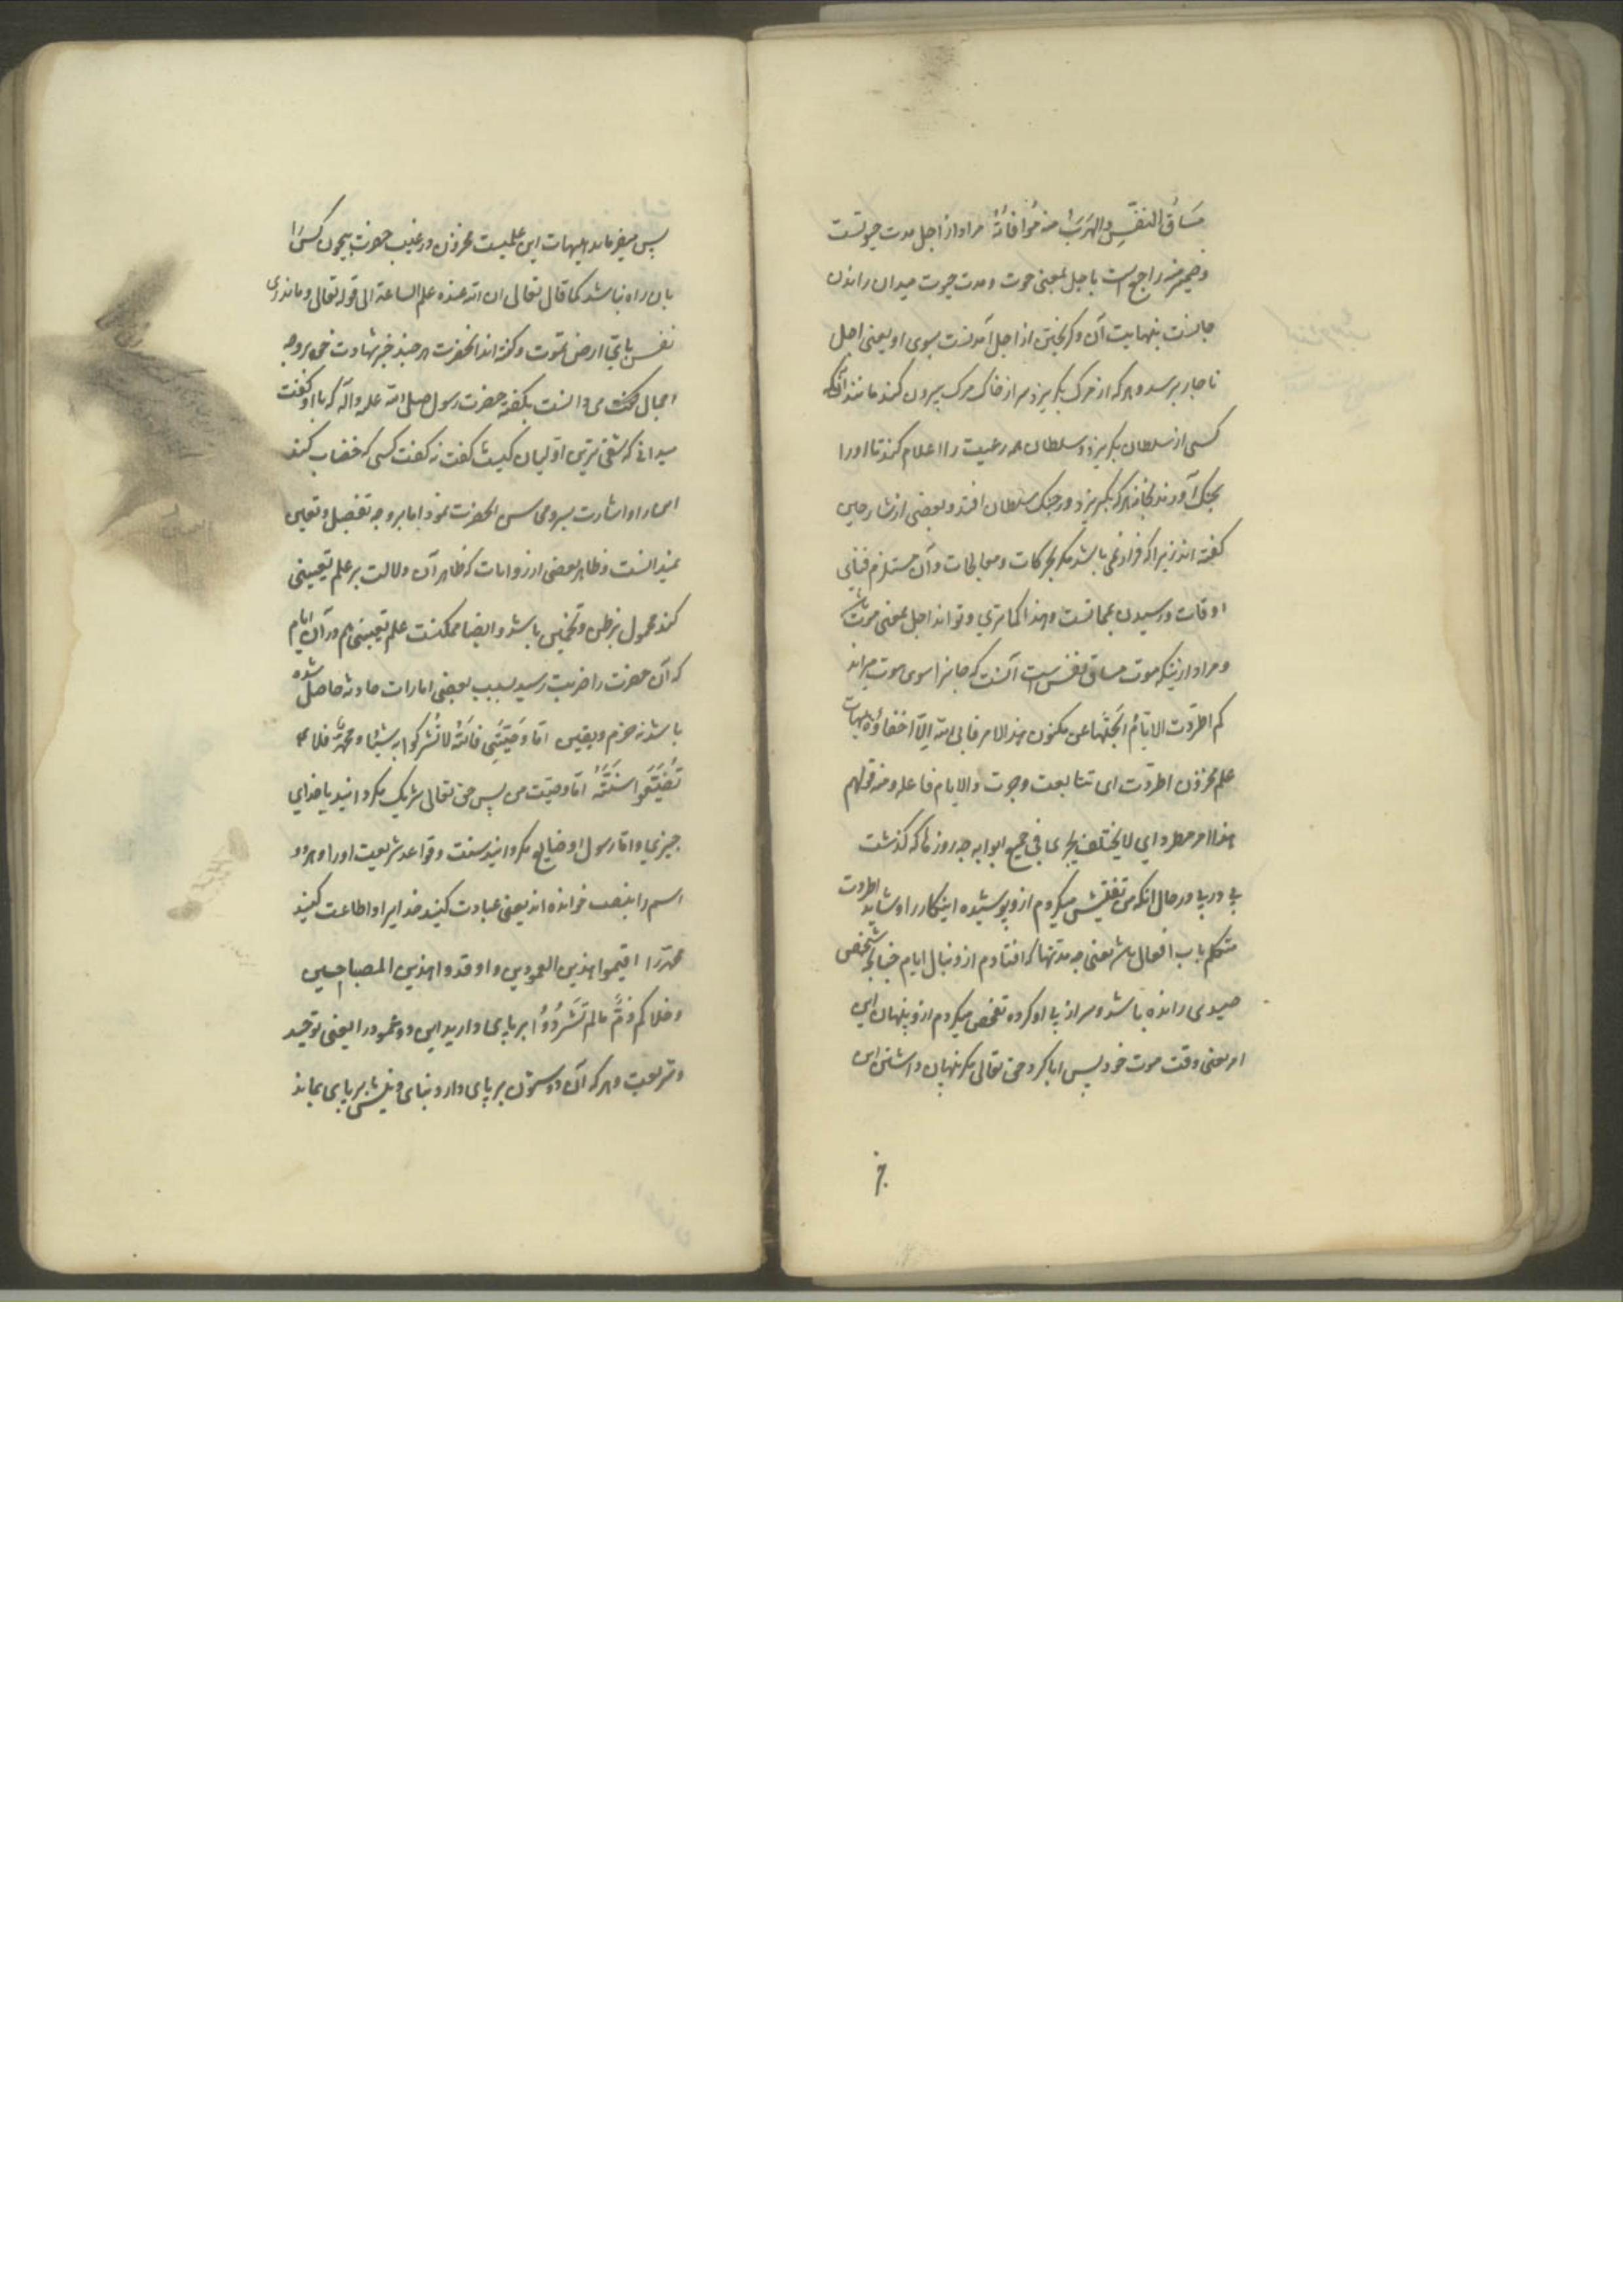 مَسَاقُ النَّفْسِ والهَرَبُ منه مُوَافَاتُهُ مراد از اجل مدت حیوتست
و ضمیر منه راجع است باجل بمعنی موت و مدت حیوت میدان راندن
جانست بنهایت آن و گریختن از اجل آمدنست بسوی او یعنی اجل
ناچار برسد و هر که از مرک بگریزد سر از خاک مرک بیرون کند مانند آنکه
کسی از سلطان بگریزد و سلطان همه رعیت را اعلام کند تا او را
بچنک آورند لاجرم هر که بگریزد در چنک سلطان افتد و بعضی از شارحین
گفته اند زیرا که فرار نمی باشد مگر بحرکات و معالجات و آن مستلزم فنای
اوقات و رسیدن بمماتست و هذا کما تری و تواند اجل بمعنی موت باشد
و مراد از اینکه موت مساق نفس است آنست که جانرا سوی موت میراند
کم اطردت الایام ابحثها عن مکنون هذا الامر فابی الله الا اخفاؤه هیهات
علم مخزون اطردت ای تتابعت وجرت والایام فاعله ومنه قولهم
هذا امر مطرد ای لا یختلف بجری فی جمیع ابوابه چه روزها که گذشت
پی در پی در حال آنکه من تفتیش میکردم از پوشیده اینکار را و شاید اطردت
متکلم باب افعال باشد یعنی چه مدتها که افتادم از دنبال ایام چنانچه شخصی
صیدی رانده باشد و سر از پی او کرده تفحص میکردم از پنهان این
امر یعنی وقت موت خود پس ابا کرد حق تعالی مگر پنهان داشتن این
پس میفرماید هیهات این علمیست مخزون در غیب حضرت بیچون کس را
بان راه نباشد کما قال تعالی ان الله عنده علم الساعة الی قوله تعالی و ما تدری
نفس بای ارض تموت و گفته اند آنحضرت هر چند خبر شهادت خود بر وجه
اجمال می دانست بگفته حضرت رسول صلی الله علیه وآله که با او گفت
میدانی که شقی ترین اولیان کیست گفت نه گفت کسی که خضاب کند
این را و اشارت بسر و محاسن آنحضرت نمود اما بر وجه تفصیل و تعیین
نمیدانست و ظاهر بعضی از روایات که ظاهر آن دلالت بر علم تعیینی
کند محمول بر ظن و تخمین باشد و ایضا ممکنست علم تعیینی هم در آن ایام
که آن حضرت را ضربت رسید بسبب بعضی امارات حادثه حاصل شده
باشد نه جزم و یقین اما وَصِیَّتِی فاللهَ لاتُشرکوا به شیئا ومحمدا فلا
تُضَیِّعُوا سُنَّتَهُ اما وصیت من پس حق تعالی شریک مگردانید با خدای
چیزی و اما رسول او ضایع مگردانید سنت و قواعد شریعت او را و هر دو
اسم را بنصب خوانده اند یعنی عبادت کنید خدایرا و اطاعت کنید
محمد را اقیموا هذین العمودین و اوقدوا هذین المصباحین
وخلاکم ذَمٌّ مالم تَشْرُدُوا بر پای دارید این دو عمود را یعنی توحید
و شریعت و هر که آن دو ستون بر پای دارد بنای دینش بر پای بماند